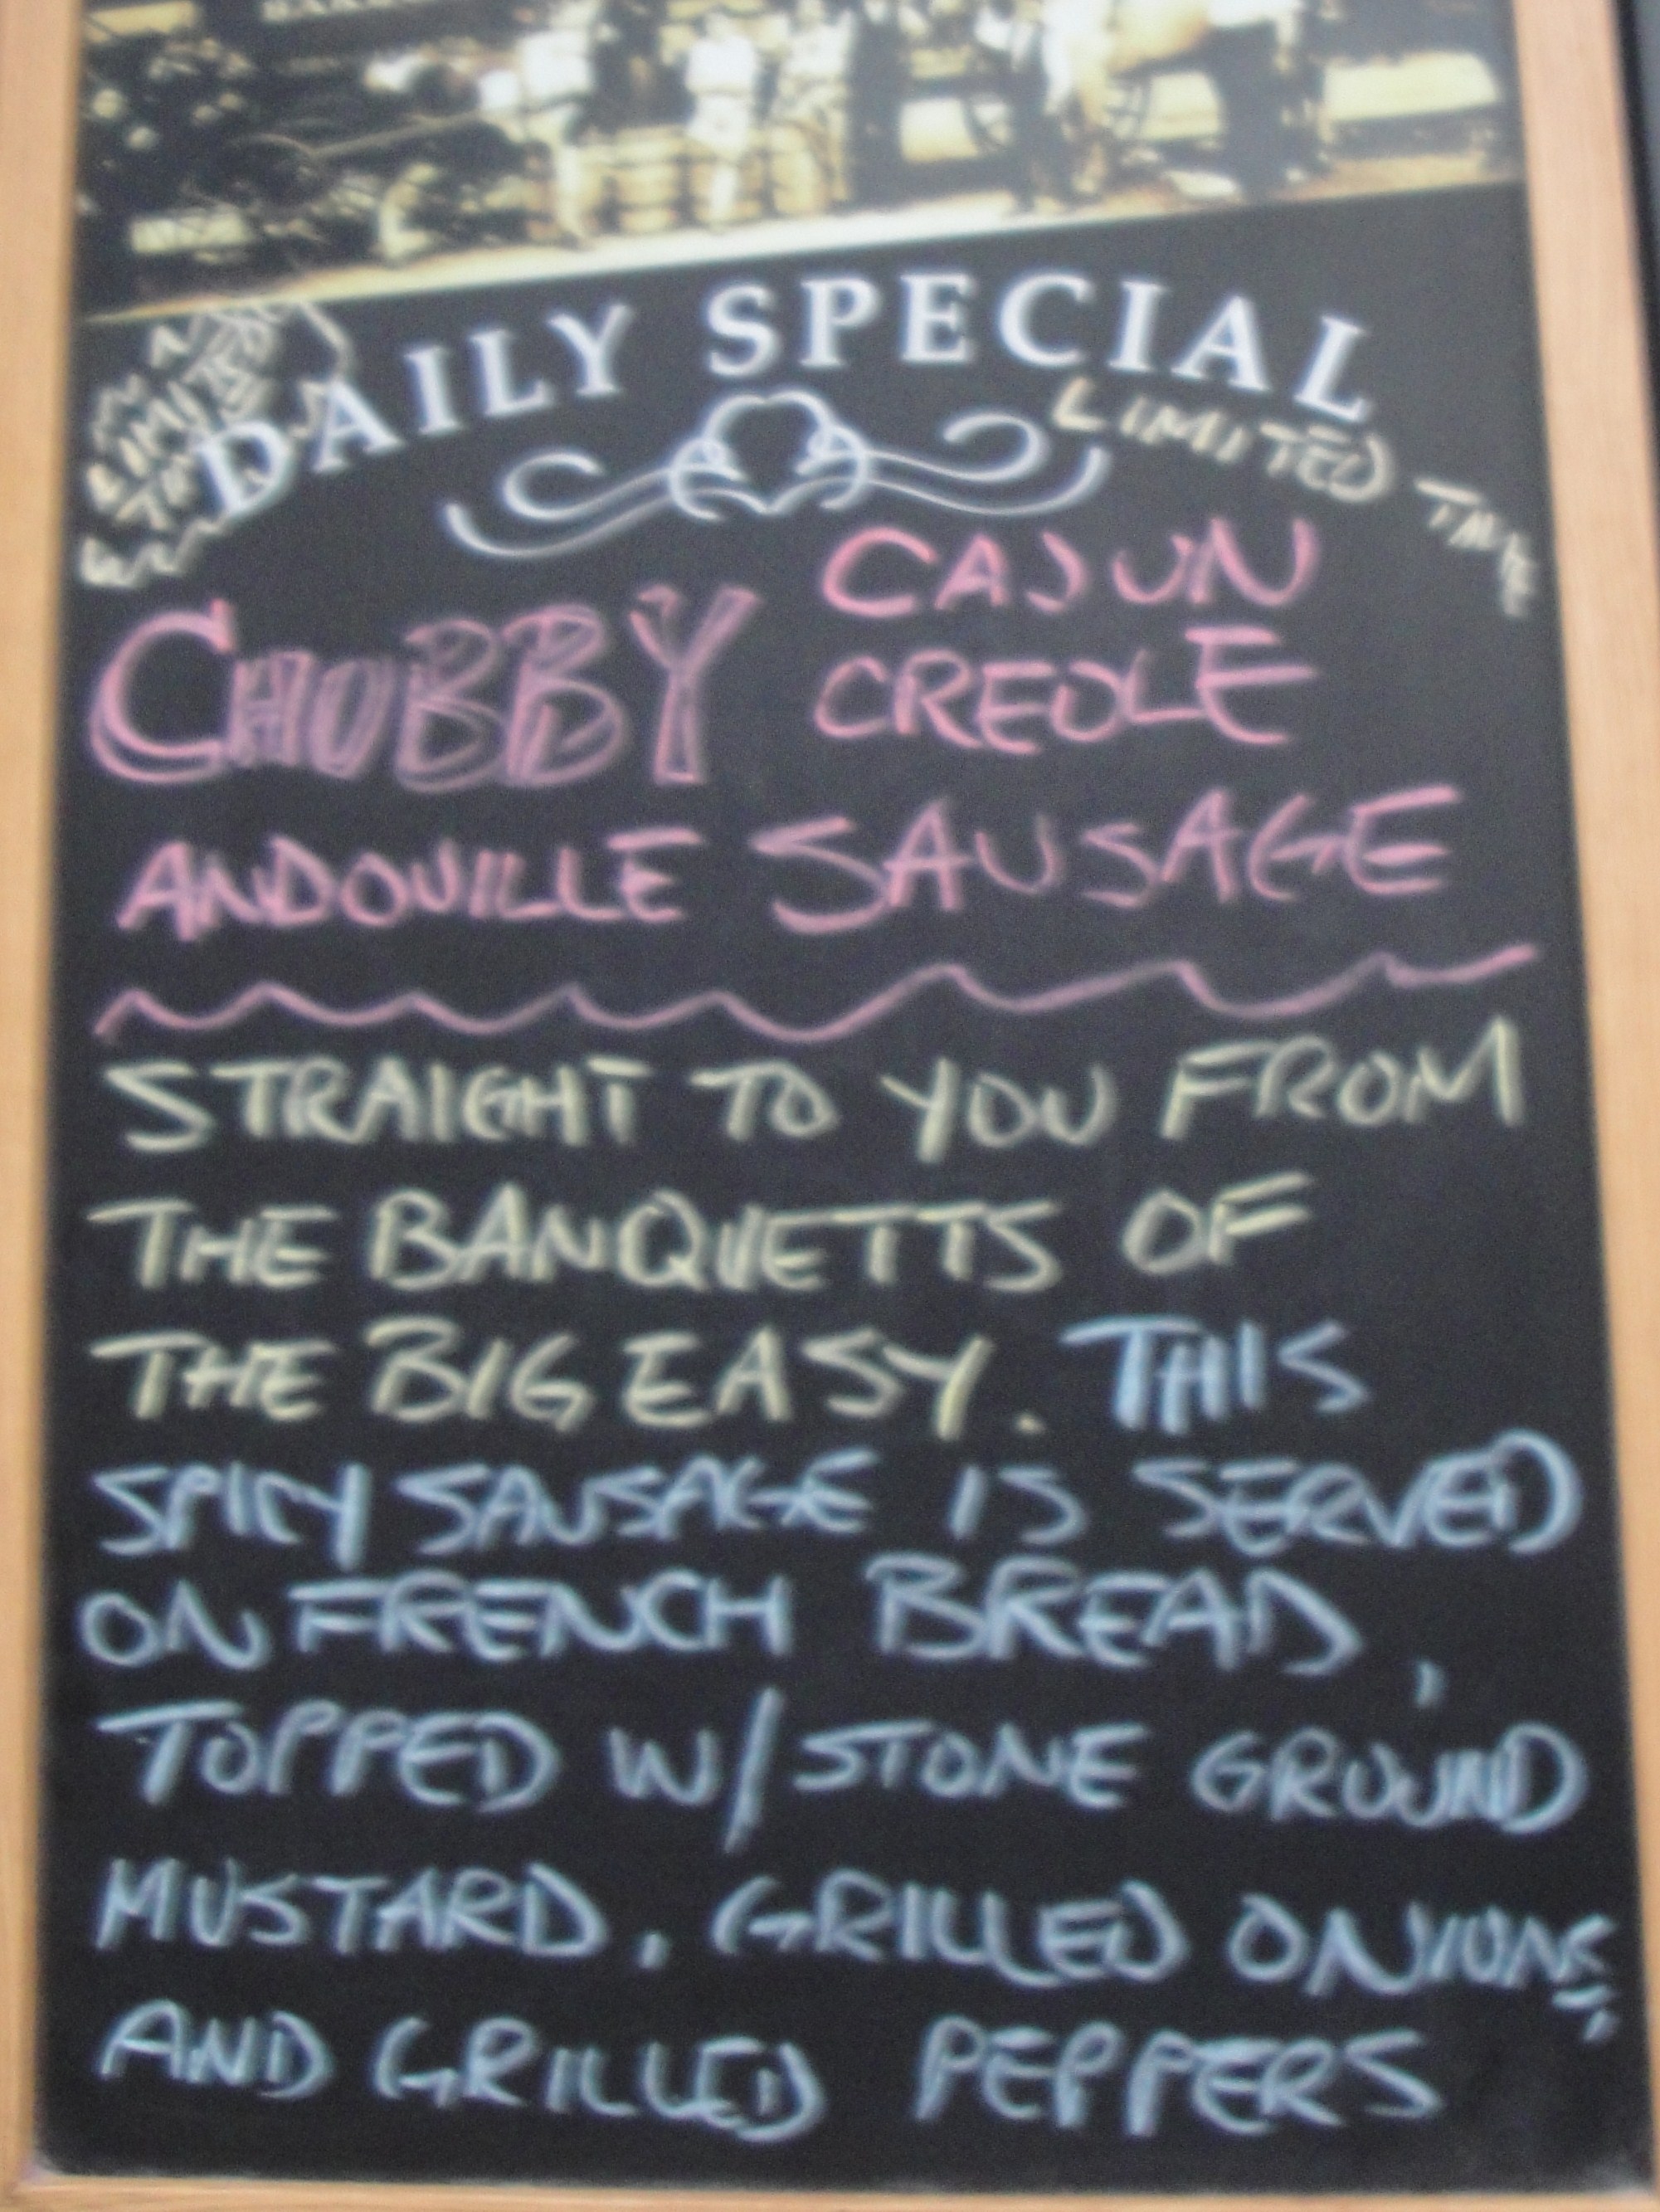 DAILY SPECIAL
LIMITED TIME
CHUBBY CAJUN
CREOLE
ANDOUILLE SAUSAGE
STRAIGHT TO YOU FROM
THE BANQUETTS OF
THE BIG EASY. THIS
SPICY SAUSAGE IS SERVED
ON FRENCH BREAD,
TOPPED W/ STONE GROUND
MUSTARD, GRILLED ONIONS,
AND GRILLED PEPPERS